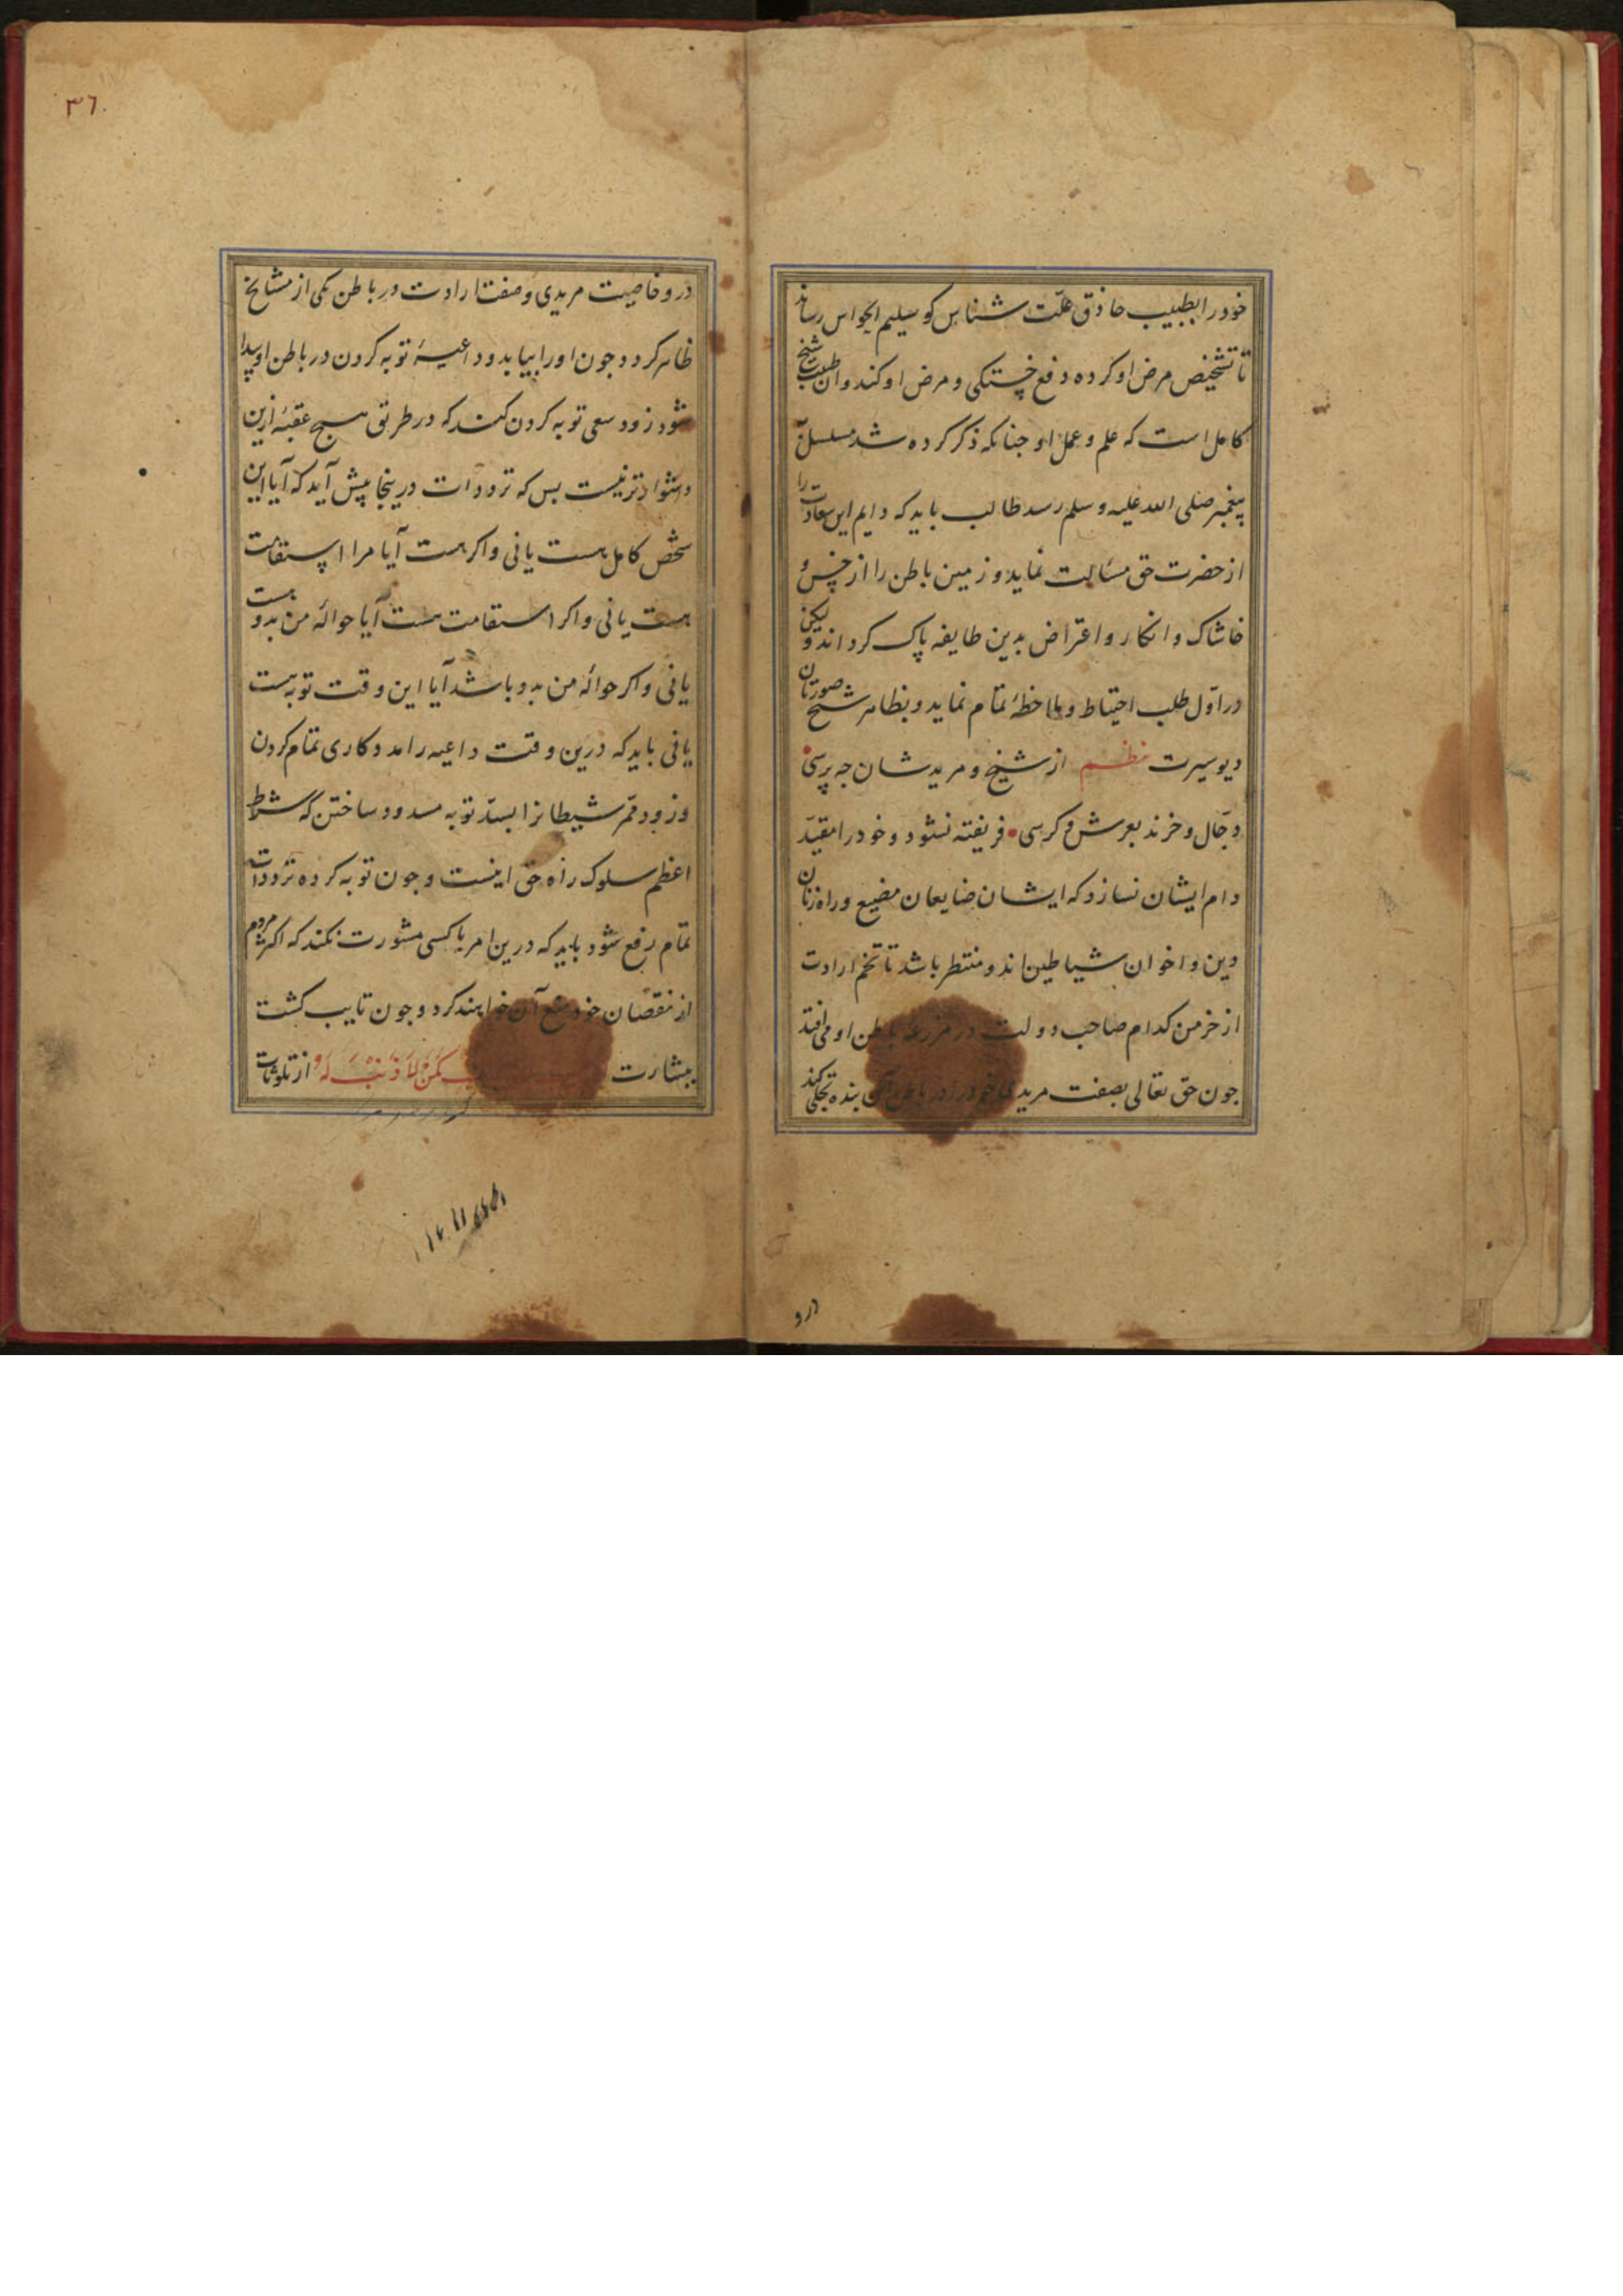 خود را بطبیب حاذق علّت شناس کو سلیم الحواس رساند
تا تشخیص مرض او کرده دفع خستکی و مرض او کند و آن طبیب شیخ
کامل است که علم و عمل او جنانکه ذکر کرده شد مسلسل به
پیغمبر صلی الله علیه و سلم رسد طالب باید که دایم این سعادت را
از حضرت حق مسالت نماید و زمین باطن را از خس و
خاشاک و انکار و اعتراض بدین طایفه پاک کرداند و لیکن
در اول طلب احتیاط و ملاحظهٔ تمام نماید و بظاهر شیخ صورتان
دیو سیرت نظم از شیخ و مرید شان جه پرسی
دجّال و خرند بعرش و کرسی فریفته نشود و خود را مقیّد
دام ایشان نسازد که ایشان ضایعان مضیع و راه زنان
دین و اخوان شیاطین اند و منتظر باشد تا تخم ارادت
از خرمن کدام صاحب دولت در مزرعهٔ باطن او می افتد
جون حق تعالی بصفت مریدی خود را در باطن آن بنده تجلی کند
درو
۳٦
درو خاصیت مریدی و صفت ارادت در باطن یکی از مشایخ
ظاهر کردد جون او را بیابد و داعیهٔ توبه کردن در باطن او پیدا
شود زود سعی توبه کردن کند که در طریق هیج عقبهٔ ازین
دشوارتر نیست بس که ترددات درینجا پیش آید که آیا این
شخص کامل هست یا نی و اکر هست آیا مرا استقامت
هست یا نی و اکر استقامت هست آیا حوالهٔ من بدو هست
یا نی و اکر حوالهٔ من بدو باشد آیا این وقت توبه هست
یا نی باید که درین وقت داعیه را مدد کاری تمام کردن
و زود ممّر شیطانرا بسدّ توبه مسدود ساختن که شرط
اعظم سلوک راه حق اینست و جون توبه کرده ترددات
تمام رفع شود باید که درین امر با کسی مشورت نکند که اکثر مردم
از نقصان خود منع آن خواهند کرد و جون تایب کشت
ببشارت کَمَنْ لَا ذَنْبَ لَهُ از تلوثات